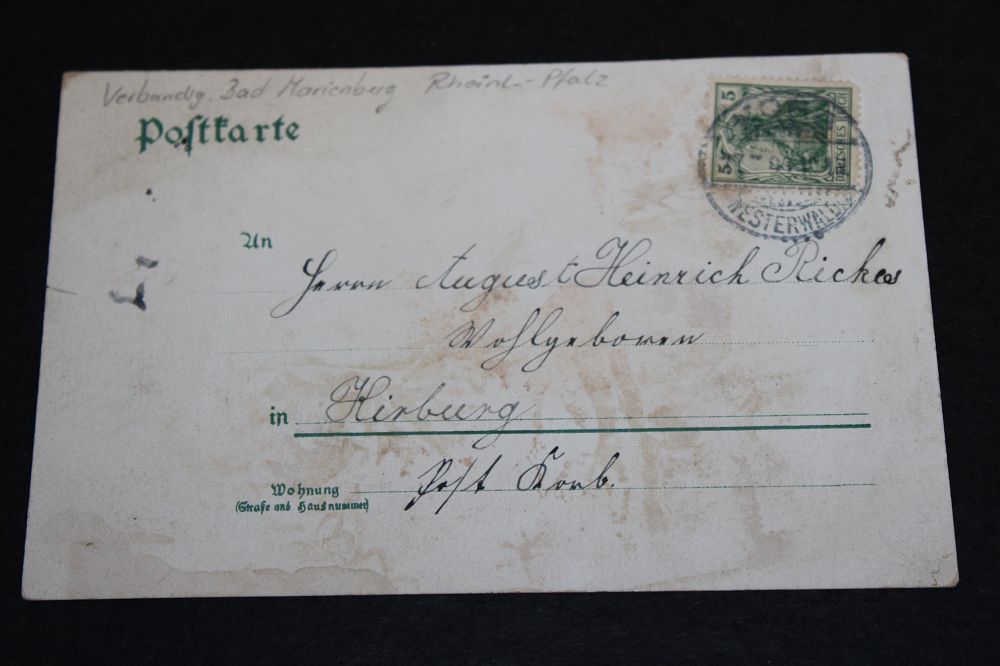 Verbandsg. Bad Marienberg Rheinl.-Pfalz
Postkarte
5
5
DEUTSCHES REICH
WESTERWALD
An
Herrn August Heinrich Rickes
Wohlgeboren
in Kirburg
Post Korb.
Wohnung
(Straße und Hausnummer)